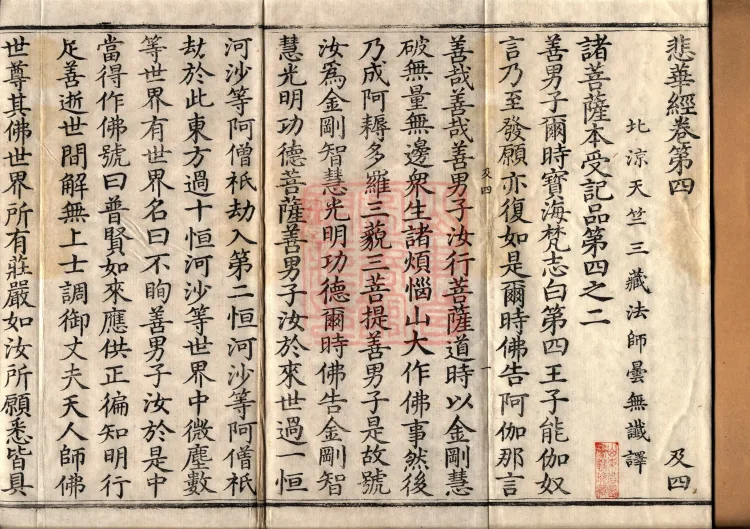 悲華經卷第四 及四
北涼天竺三藏法師曇無讖譯
諸菩薩本受記品第四之二
善男子爾時寶海梵志白第四王子能伽奴
言乃至發願亦復如是爾時佛告阿伽那言
及四 一
善哉善哉善男子汝行菩薩道時以金剛慧
破無量無邊衆生諸煩惱山大作佛事然後
乃成阿耨多羅三藐三菩提善男子是故號
汝爲金剛智慧光明功德爾時佛告金剛智
慧光明功德菩薩善男子汝於來世過一恒
河沙等阿僧祇劫入第二恒河沙等阿僧祇
劫於此東方過十恒河沙等世界中微塵數
等世界有世界名曰不眴善男子汝於是中
當得作佛號曰普賢如來應供正徧知明行
足善逝世間解無上士調御丈夫天人師佛
世尊其佛世界所有莊嚴如汝所願悉皆具